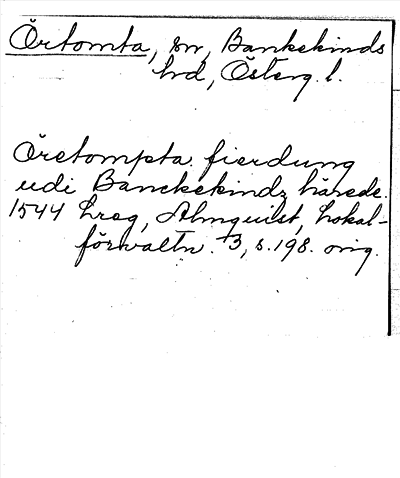 Örtomta, sn, Bankekinds
hd, Österg. l.
Öretompta fierdung
udi Banckekindz härede.
1544 hreg, Almquist, Lokal-
förvaltn. 3, s. 198. orig.